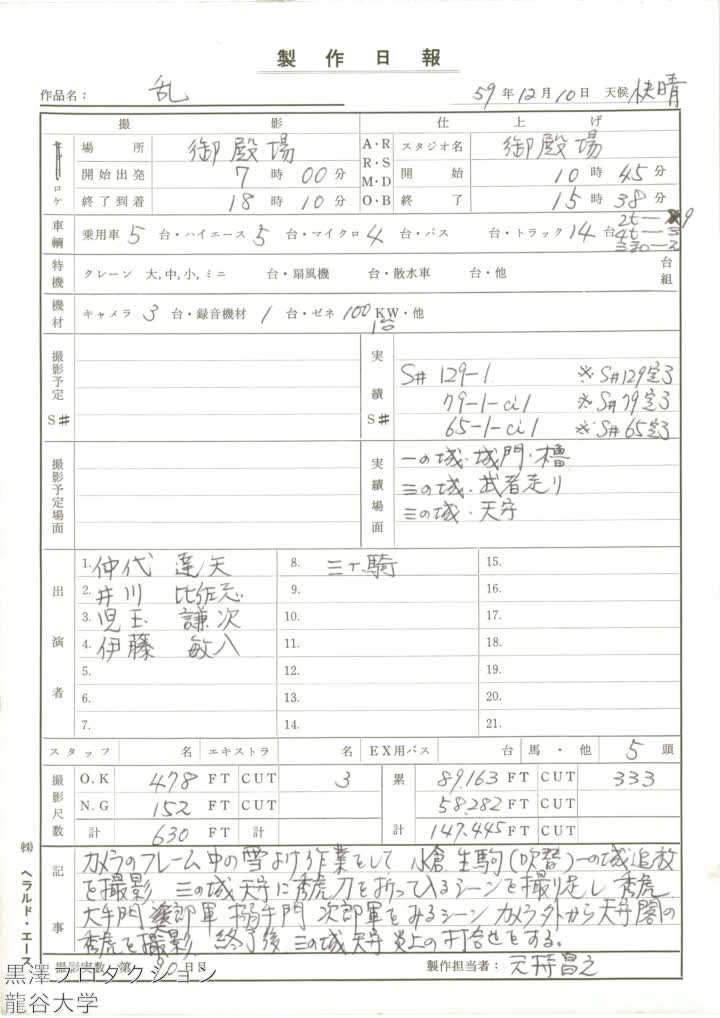 製作日報
作品名： 乱 59年12月10日 天候 快晴
撮影 仕上げ
ロケ 場所 御殿場 A・R R・S M・D O・B スタジオ名 御殿場
開始出発 7時00分 開始 10時45分
終了到着 18時10分 終了 15時38分
車輌 乗用車 5 台・ハイエース 5 台・マイクロ 4 台・バス 台・トラック 14 台 2t— 9 4t—3
特機 クレーン 大,中,小,ミニ 台・扇風機 台・散水車 台・他 台組
機材 キャメラ 3 台・録音機材 1 台・ゼネ 100 KW・他
1台
撮影予定 S# 実績 S#
S# 129-1 ※S#129定3
79-1-ci1 ※S#79定3
65-1-ci1 ※S#65定3
撮影予定場面 実績場面
一の城・城門・櫓
三の城・武者走り
三の城・天守
出演者
1. 仲代 達矢 8. 三十騎 15.
2. 井川 比佐志 9. 16.
3. 児玉 謙次 10. 17.
4. 伊藤 敏八 11. 18.
5. 12. 19.
6. 13. 20.
7. 14. 21.
スタッフ 名 エキストラ 名 EX用バス 台 馬・他 5 頭
撮影尺数 O.K 478 FT CUT 3 累計 89.163 FT CUT 333
N.G 152 FT CUT 58.282 FT CUT
計 630 FT 計 147.445 FT CUT
記事
カメラのフレーム中の雪よけ作業をして 小倉 生駒(吹替)一の城追放
を撮影 三の城天守に秀虎刀を折って入るシーンを撮り足し 秀虎
大手門 郎軍 搦手門 次郎軍をみるシーン カメラ外から天守閣の
秀虎を撮影 終了後 三の城天守炎上の打合せをする。
撮影実数・第 日日 製作担当者：
㈱ヘラルド・エース
黒澤プロダクション
龍谷大学